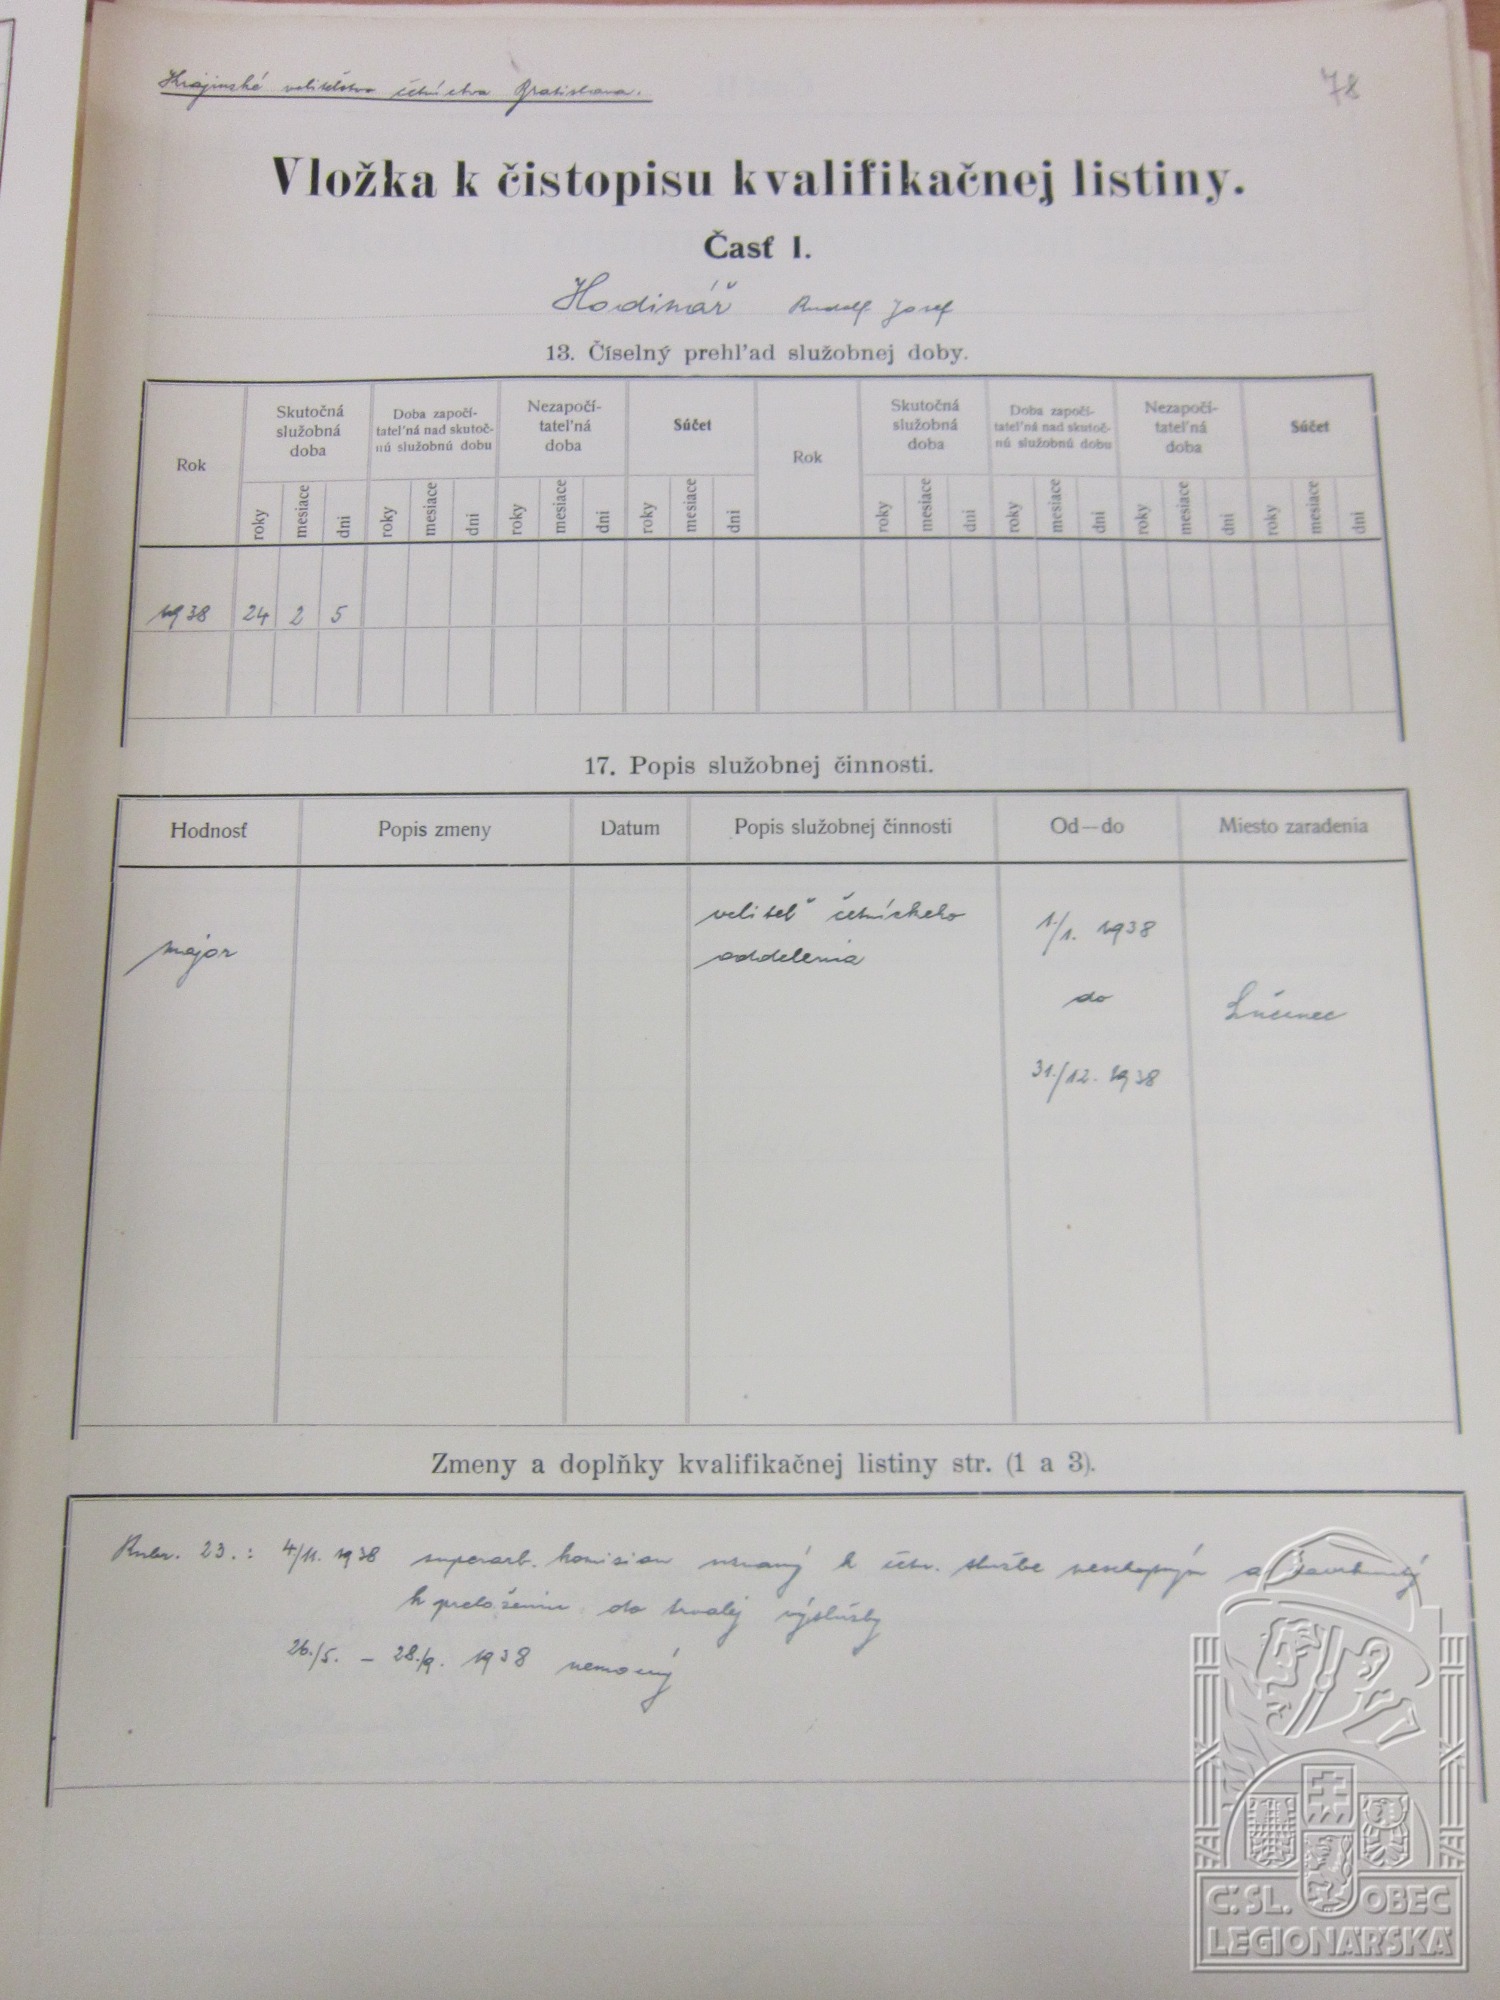 Krajinské velitelstvo četníctva Bratislava.
78
Vložka k čistopisu kvalifikačnej listiny.
Časť I.
Hodinář Rudolf Josef
13. Číselný prehľad služobnej doby.
Rok Skutočná služobná doba Doba započítateľná nad skutočnú služobnú dobu Nezapočítateľná doba Súčet Rok Skutočná služobná doba Doba započítateľná nad skutočnú služobnú dobu Nezapočítateľná doba Súčet
roky mesiace dni roky mesiace dni roky mesiace dni roky mesiace dni roky mesiace dni roky mesiace dni roky mesiace dni roky mesiace dni
1938 24 2 5
17. Popis služobnej činnosti.
Hodnosť Popis zmeny Datum Popis služobnej činnosti Od—do Miesto zaradenia
major
veliteľ četníckeho
oddelenia
1./1. 1938
do
31./12. 1938
Lučenec
Zmeny a doplňky kvalifikačnej listiny str. (1 a 3).
Rubr. 23.: 4/11. 1938 superarb. komisiou uznaný k četn. službe neschopným a navrhnutý
k preloženiu do trvalej výslužby
26./5. – 28./9. 1938 nemocný
Č.SL. OBEC
LEGIONÁŘSKÁ